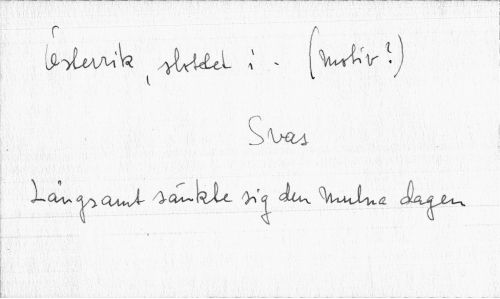 Österrik, slottet i - (motiv?)
Svas
Långsamt sänkte sig den mulna dagen